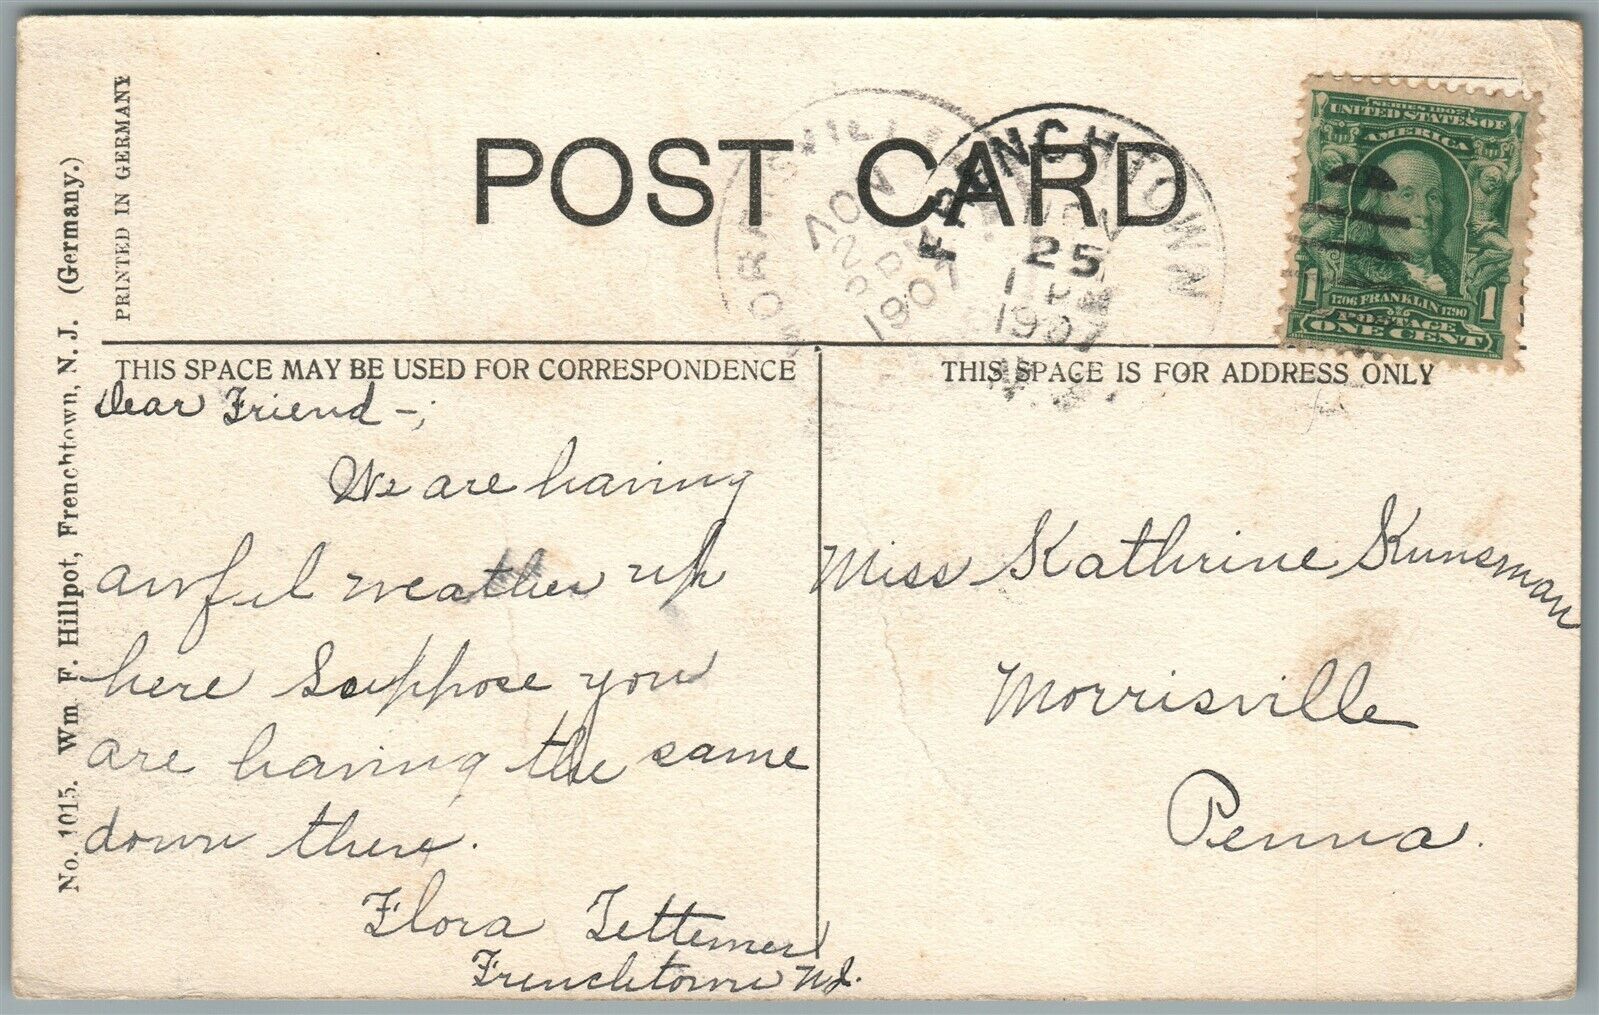 POST CARD
MORRISVILLE
NOV
2
1907
FRENCHTOWN
NOV
25
1 PM
1907
N.J.
SERIES 1902
UNITED STATES OF
AMERICA
1 1706 FRANKLIN 1790 1
POSTAGE
ONE CENT
PRINTED IN GERMANY
No. 1015. Wm F. Hillpot, Frenchtown, N. J. (Germany.)
THIS SPACE MAY BE USED FOR CORRESPONDENCE
Dear Friend -;
We are having
awful weather up
here Suppose you
are having the same
down there.
Flora Tettemer
Frenchtown NJ.
THIS SPACE IS FOR ADDRESS ONLY
Miss Kathrine Kunsman
Morrisville
Penna.